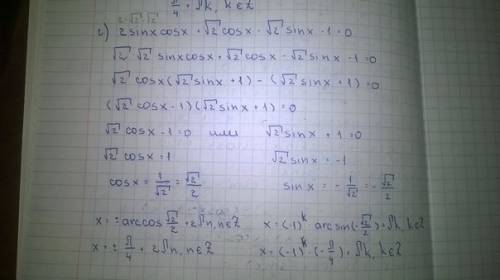 π/4 + πk, k∈Z
2 = √2·√2
г) 2sinx cosx + √2 cosx - √2 sinx - 1 = 0
√2 √2 sinx cosx + √2 cosx - √2 sinx - 1 = 0
√2 cosx(√2 sinx + 1) - (√2 sinx + 1) = 0
(√2 cosx - 1)(√2 sinx + 1) = 0
√2 cosx - 1 = 0 или √2 sinx + 1 = 0
√2 cosx = 1 √2 sinx = -1
cosx = 1/√2 = √2/2 sinx = -1/√2 = -√2/2
x = ± arccos √2/2 + 2πn, n∈Z x = (-1)^k arcsin(-√2/2) + πk, k∈Z
x = ± π/4 + 2πn, n∈Z x = (-1)^k · (-π/4) + πk, k∈Z